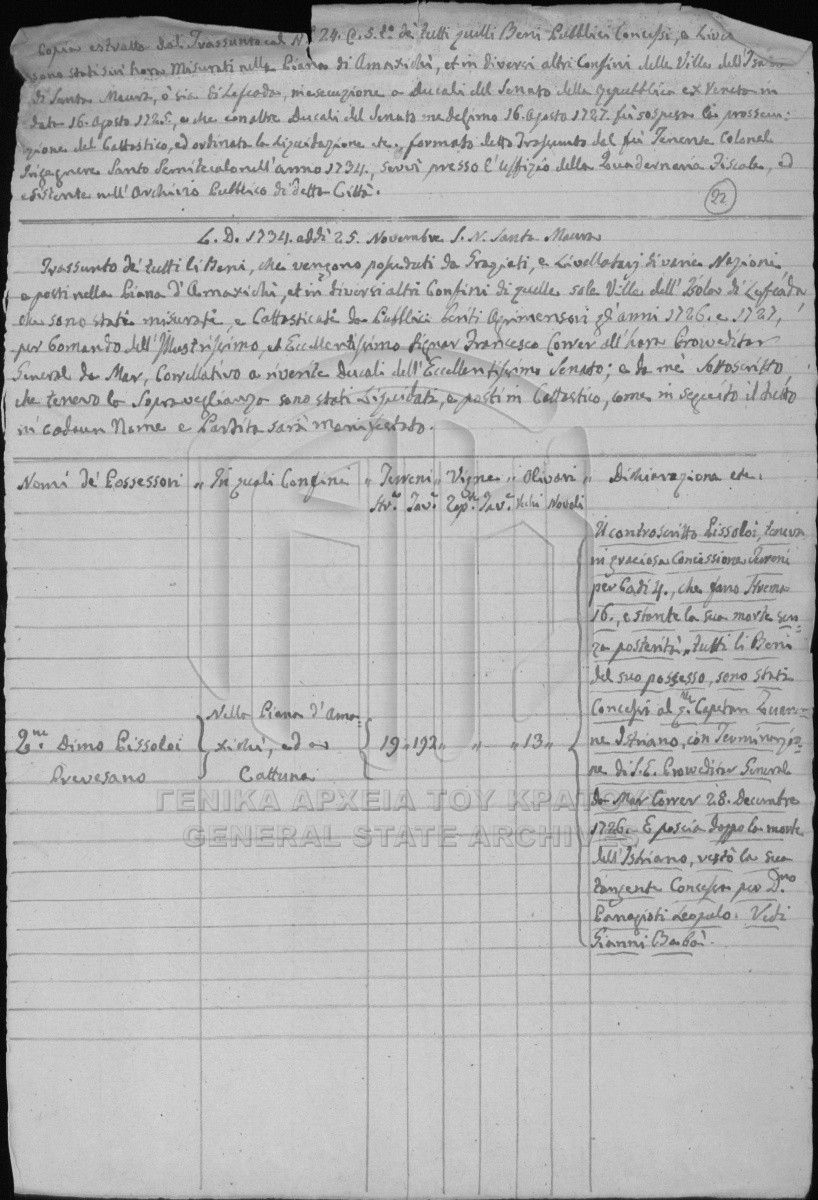 Copia estratta dal Trassunto al N.º 24. C. S. t.ª de tutti quelli Beni Pubblici Concessi, a Livea
sono stati sin hora Misurati nella Piana di Amaxichi, et in diversi altri Confini delle Ville dell'Isola
di Santa Maura, ò sia di Lefcada, in esecuzione a Ducali del Senato della Repubblica ex Veneta in
data 16. Agosto 1725, e che con altre Ducali del Senato medesimo 16. Agosto 1727. fù sospesa la prosecu:
zione del Cattastico, ed ordinata la Liquidazione etc. formato detto Trassunto dal fù Tenente Colonel
Ingegnere Santo Semitecolo nell'anno 1734., servì presso l'Uffizio della Quadernaria Fiscale, ed
esistente nell'Archivio Pubblico di detta Città.
22
L. D. 1734. addì 25. Novembre S. N. Santa Maura
Trassunto de tutti li Beni, che vengono posseduti da Graziati, e Livellatarj di varie Nazioni,
e posti nella Piana d'Amaxichi, et in diversi altri Confini di quelle sole Ville dell'Isola di Lefcada
che sono state misurate, e Cattasticate da Pubblici Periti Agrimensori gl'anni 1726. e 1727,
per Comando dell'Illustrissimo, et Eccellentissimo Signor Francesco Correr all'hora Proveditor
General da Mar, Correllativo a riverite Ducali dell'Eccellentissimo Senato; e da me Sottoscritto
che tenevo la Sopraveglianza sono stati Liquidati, e posti in Cattastico, come in seguito il tutto
in cadaun Nome e Partita sarà manifestato.
Nomi de Possessori „ In quali Confini „ Terreni „ Vigne „ Olivari „ Dichiarazione etc.
Str.ª Tav.ª Zap.ª Tav.ª Vechi Noveli
Il controscritto Pissoloi, teneva
in graciosa Concessione Terreni
per Cadi 4., che fano Strema
16., e stante la sua morte sen=
za posterità, tutti li Beni
del suo possesso, sono stati
Concessi al q.m Capitan Zuan=
ne Istriano, con Terminazio=
ne di S. E. Proveditor General
da Mar Correr 28. Decembre
1726. E poscia doppo la morte
dell'Istriano, restò la sua
tangente Concessa per D.no
Panagioti Leopulo. Vedi
Gianni Barbà.
2.ne Dimo Pissoloi
Prevesano
Nella Piana d'Ama=
xichi, ed a
Cattuna
19 „ 192 „ „ „ 13 „
ΓΕΝΙΚΑ ΑΡΧΕΙΑ ΤΟΥ ΚΡΑΤΟΥΣ
GENERAL STATE ARCHIVES